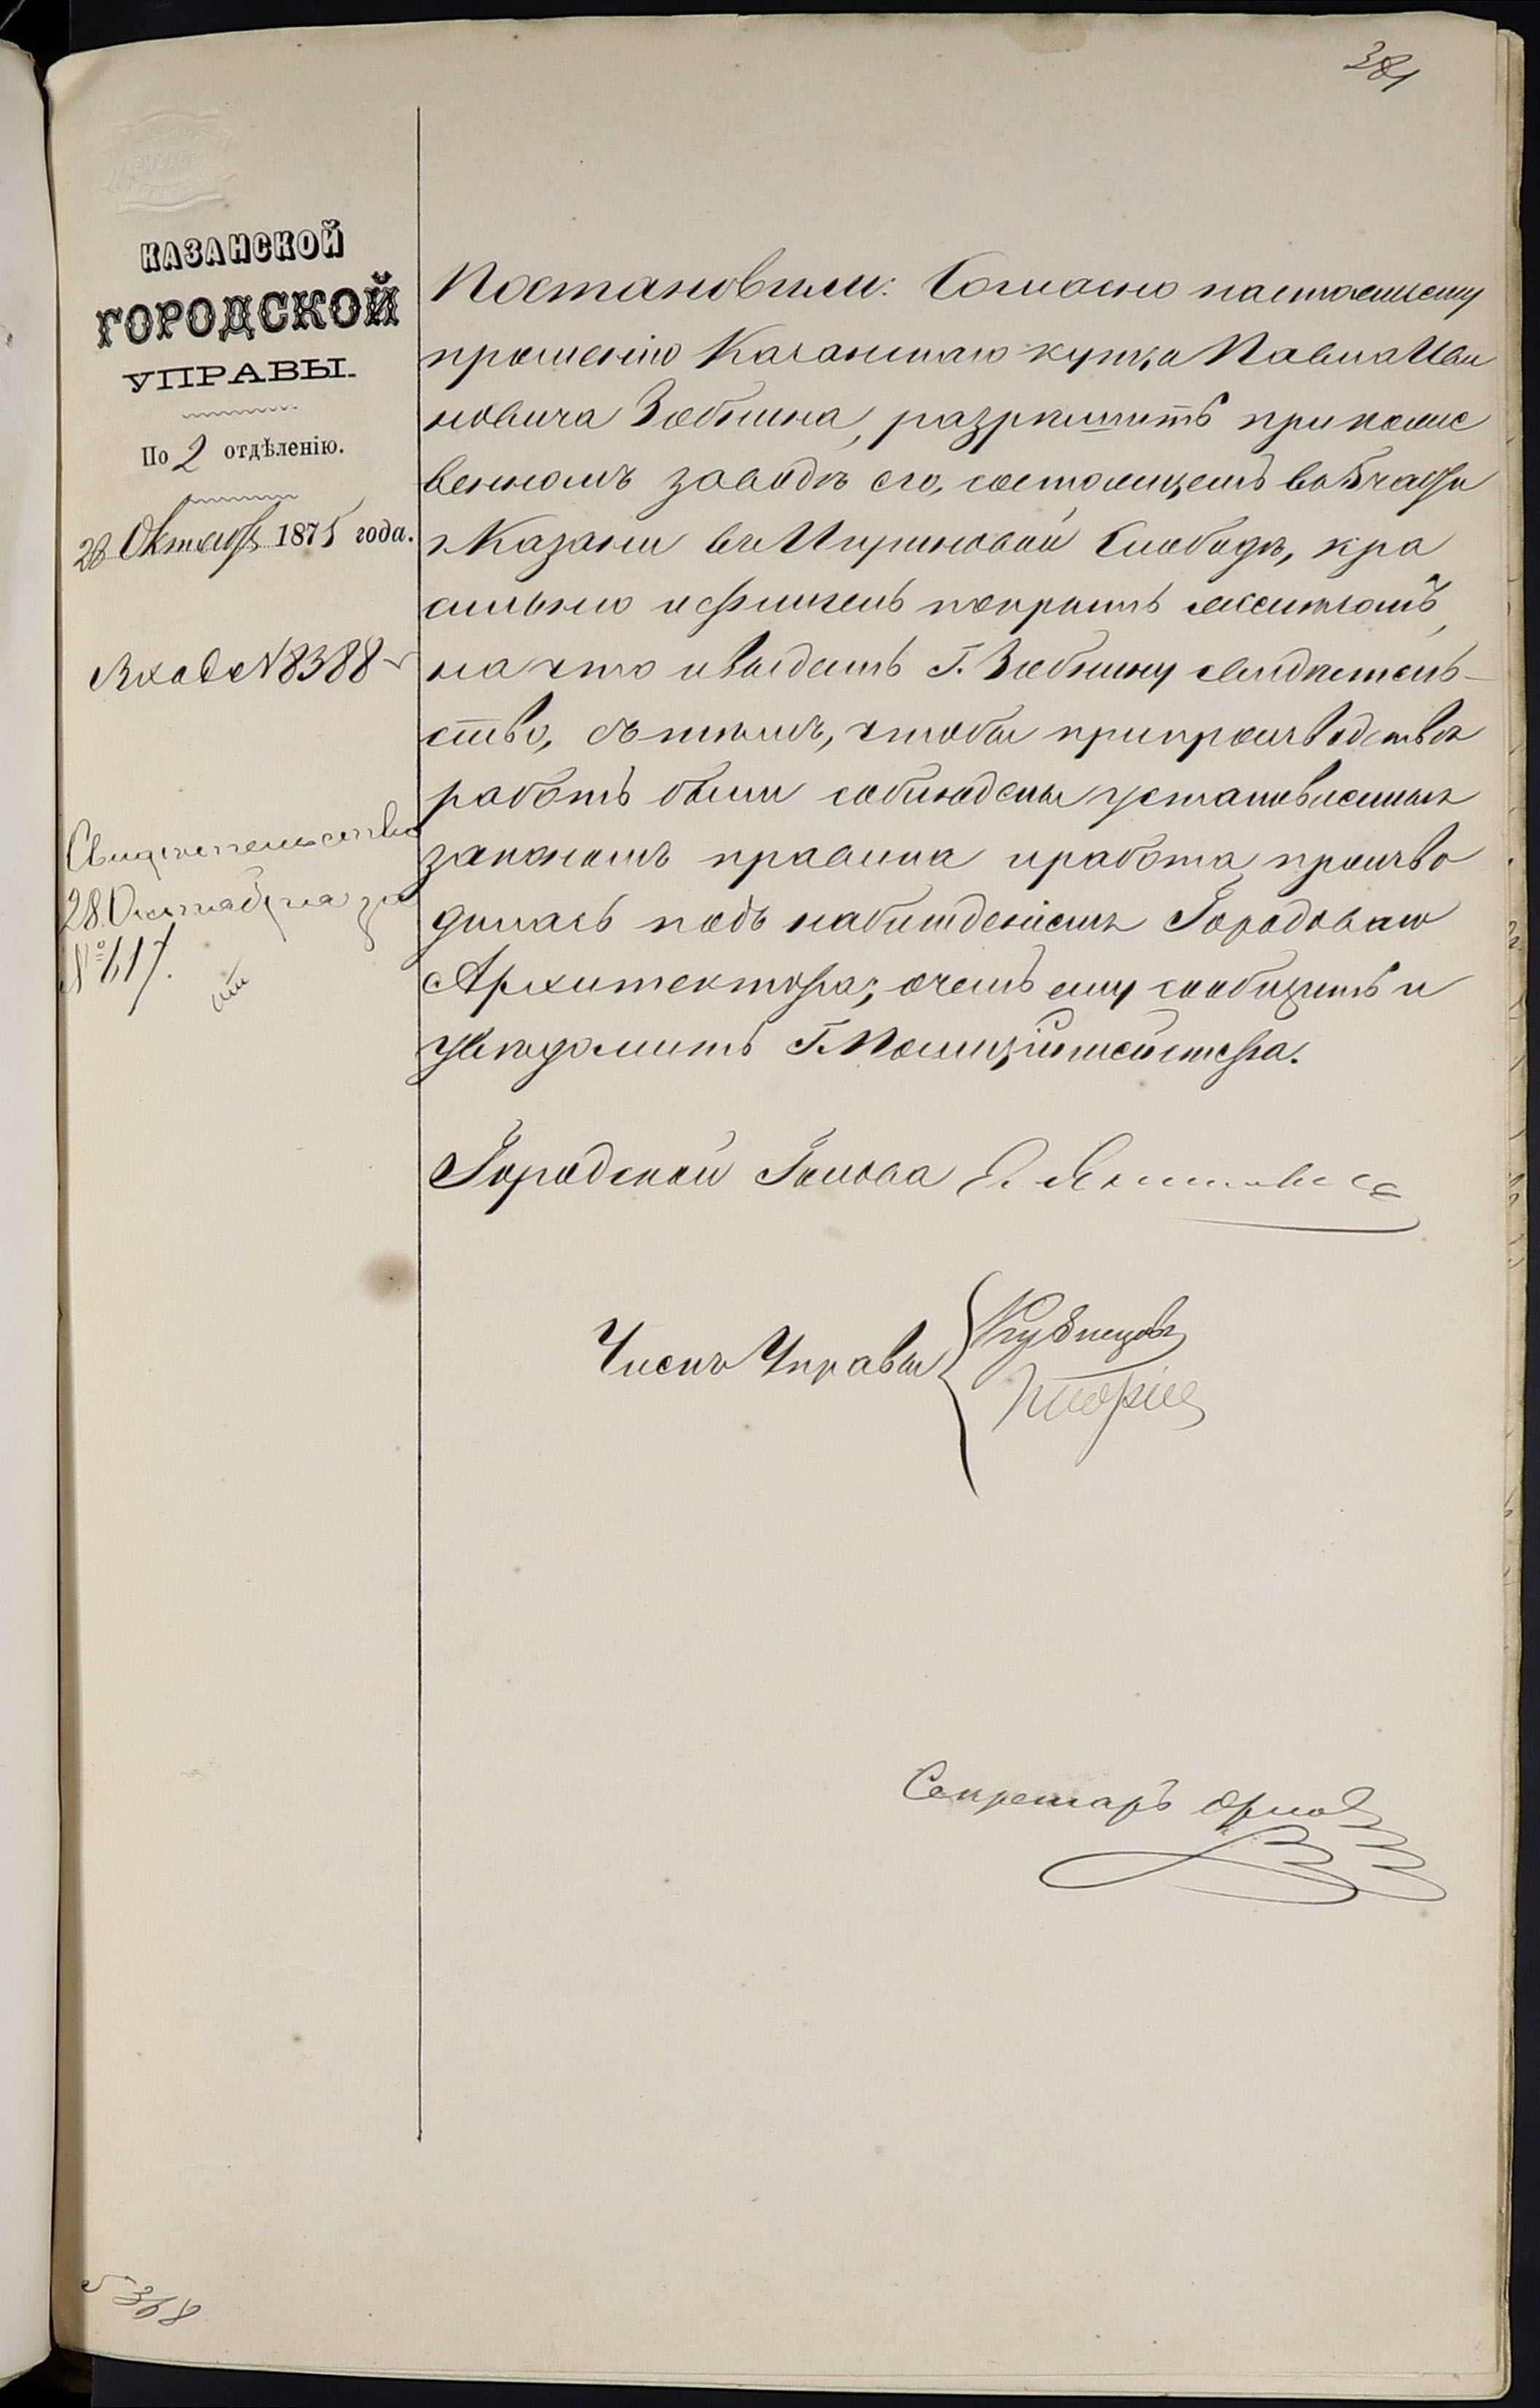 381
КАЗАНСКОЙ
ГОРОДСКОЙ
УПРАВЫ.
По 2 отдѣленію.
28 Октября 1875 года.
Вход № 8388
Свидетельство
28 Октября за
№ 617.
Постановили: Согласно настоящему
прошенію Казанскаго купца Павла Ива
новича Заблина, разрешить при кожев
венномъ заводѣ его, состоящемъ во 5 части
г. Казани въ Игуменовой Слободѣ, кра
сильню и флигель покрыть желѣзомъ,
на что и выдать Г. Заблину свидѣтель-
ство, съ тѣмъ, чтобы при производствѣ
работъ были соблюдены установленныя
закономъ правила и работа произво
дилась подъ наблюденіемъ Городоваго
Архитектора; о чемъ ему сообщить и
увѣдомить Г. Полиціймейстера.
Городской Голова
Членъ Управы
Кузнецовъ
Секретарь Орловъ
5368